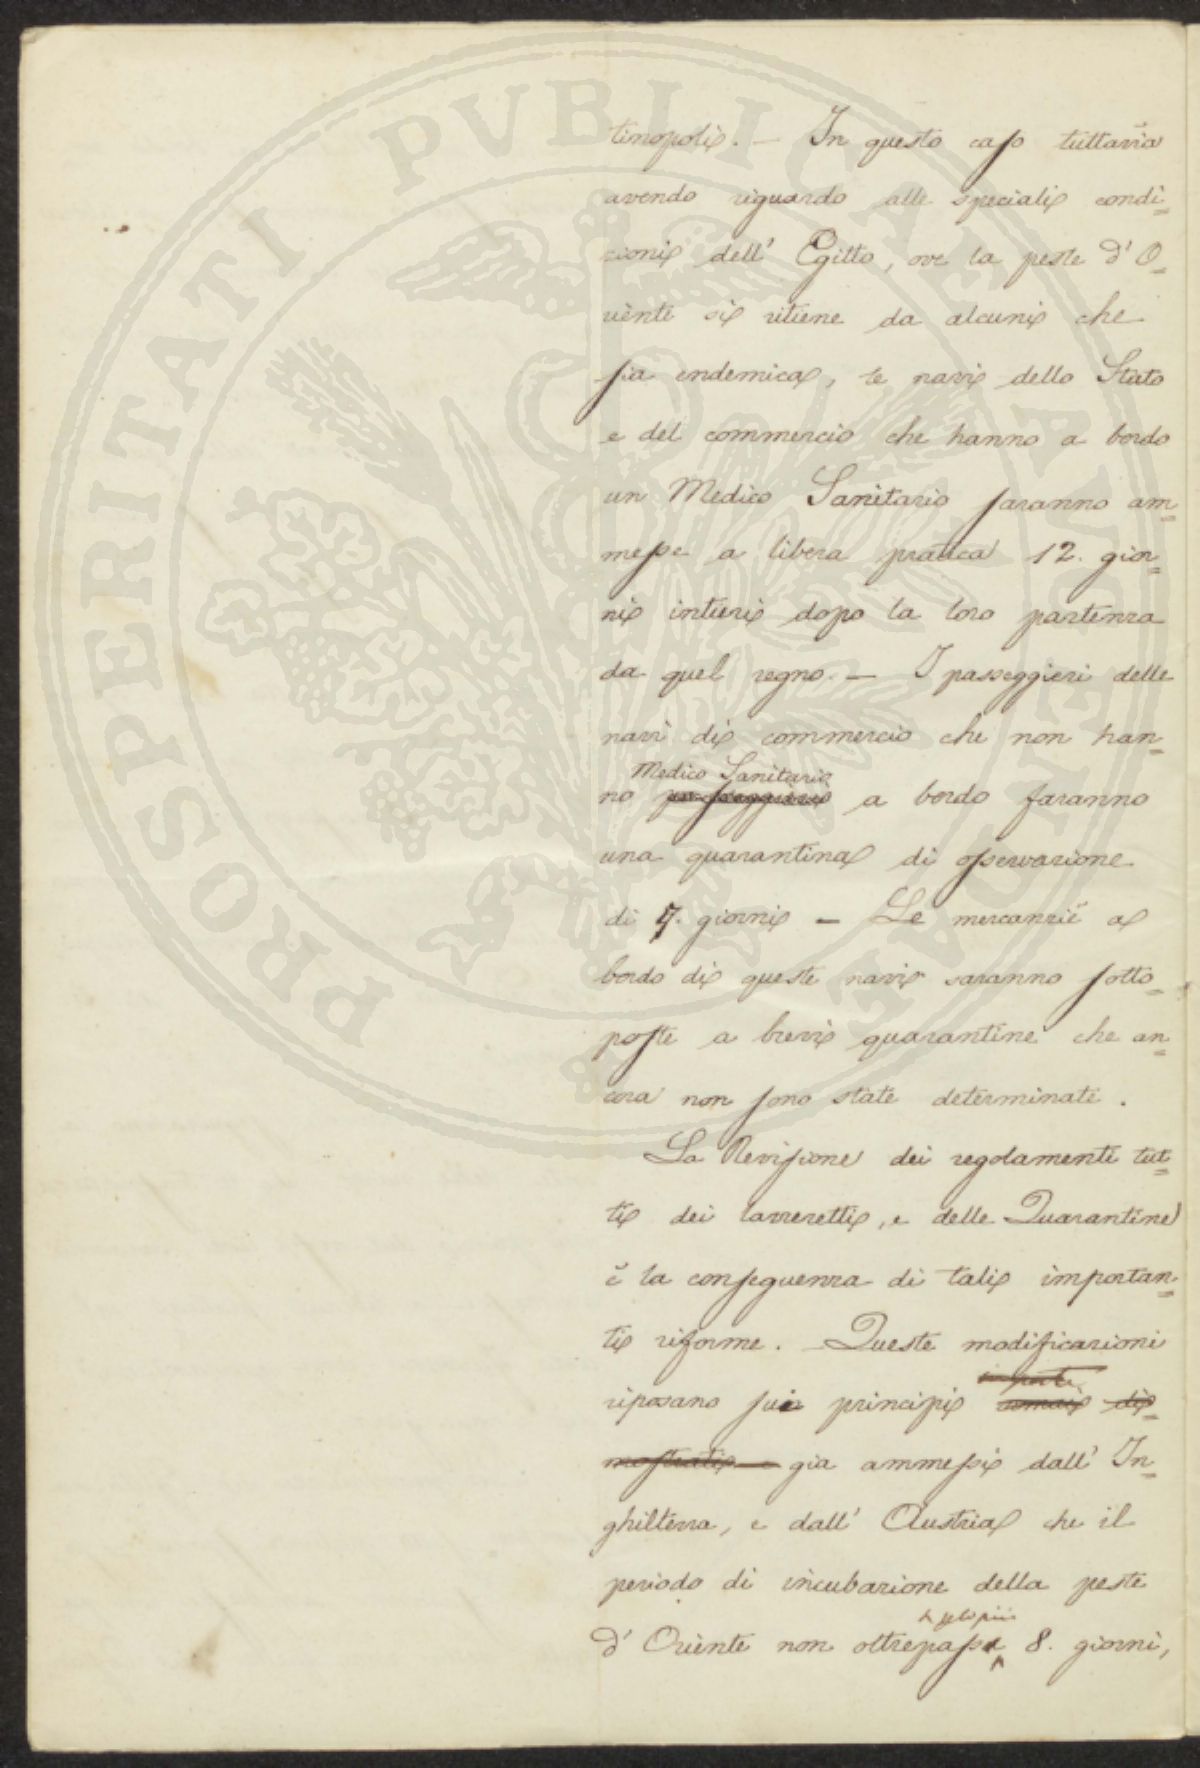 tinopoli. — In questo caso tuttavia
avendo riguardo alle speciali condi=
zioni dell' Egitto, ove la peste d' O=
riente si ritiene da alcuni che
sia endemica, le navi dello Stato
e del commercio che hanno a bordo
un Medico Sanitario saranno am=
messe a libera pratica 12. gior=
ni intieri dopo la loro partenza
da quel regno. — I passeggieri delle
navi di commercio che non han=
Medico Sanitario
no passeggieri a bordo faranno
una quarantina di osservazione
di 7. giorni — Le mercanzie a
bordo di queste navi saranno sotto=
poste a brevi quarantine che an=
cora non sono state determinate.
La Revisione dei regolamenti tut=
ti dei lazzeretti, e delle Quarantine
è la conseguenza di tali importan=
ti riforme. — Queste modificazioni
riposano sui principi ormai di=
mostrati e gia ammessi dall' In=
ghilterra, e dall' Austria che il
periodo di incubazione della peste
d' Oriente non oltrepassa 8. giorni,
PROSPERITATI PVBLICAE AVGENDAE